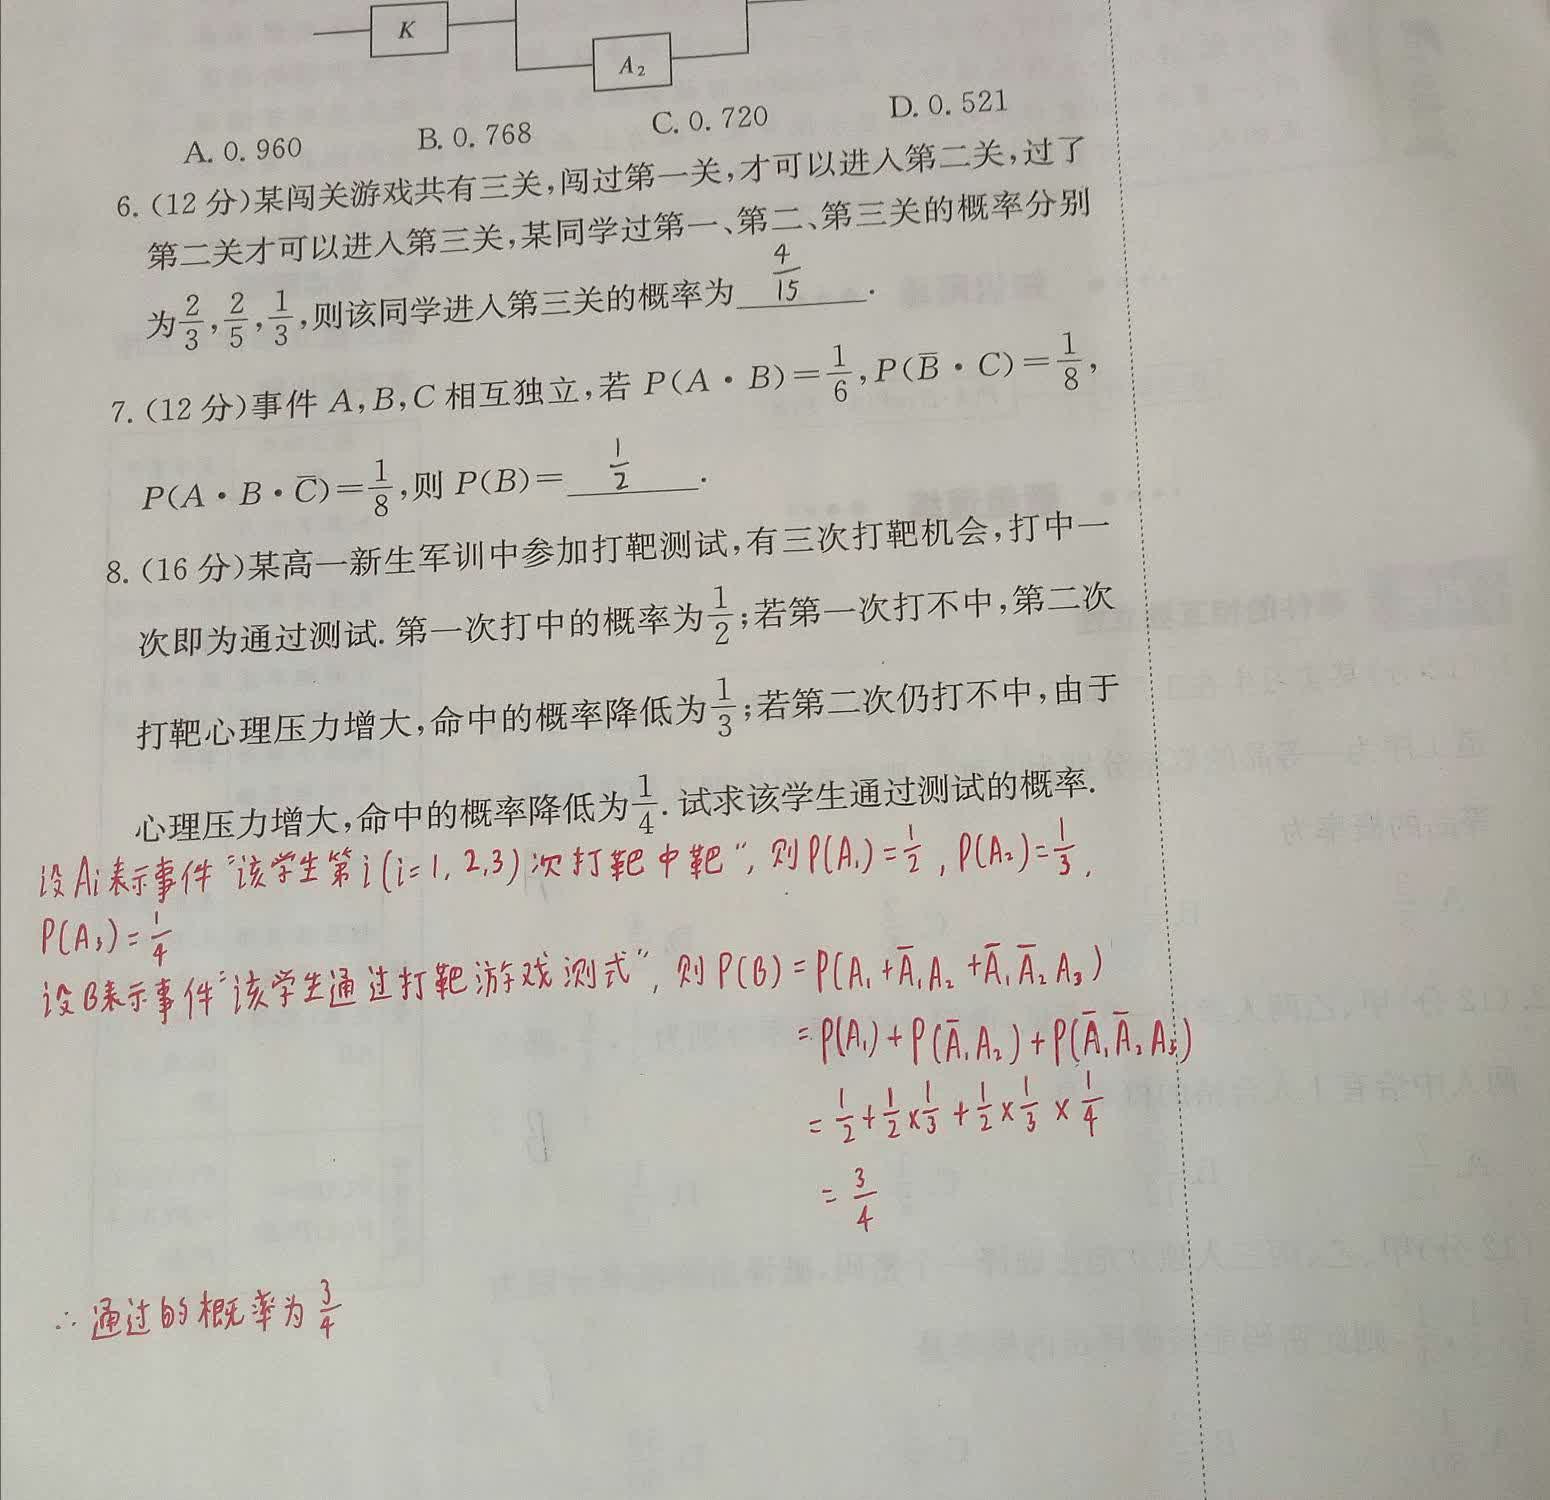 K
A₂
A. 0.960 B. 0.768 C. 0.720 D. 0.521
6. (12 分)某闯关游戏共有三关,闯过第一关,才可以进入第二关,过了
第二关才可以进入第三关,某同学过第一、第二、第三关的概率分别
为2/3,2/5,1/3,则该同学进入第三关的概率为 4/15 .
7. (12 分)事件 A,B,C 相互独立,若 P(A·B)=1/6,P(B̅·C)=1/8,
P(A·B·C̅)=1/8,则 P(B)= 1/2 .
8. (16 分)某高一新生军训中参加打靶测试,有三次打靶机会,打中一
次即为通过测试. 第一次打中的概率为1/2;若第一次打不中,第二次
打靶心理压力增大,命中的概率降低为1/3;若第二次仍打不中,由于
心理压力增大,命中的概率降低为1/4. 试求该学生通过测试的概率.
设Ai表示事件“该学生第i(i=1,2,3)次打靶中靶”,则P(A₁)=1/2,P(A₂)=1/3,
P(A₃)=1/4
设B表示事件“该学生通过打靶游戏测式”,则P(B)=P(A₁+A̅₁A₂+A̅₁A̅₂A₃)
=P(A₁)+P(A̅₁A₂)+P(A̅₁A̅₂A₃)
=1/2+1/2×1/3+1/2×1/3×1/4
=3/4
∴通过的概率为3/4